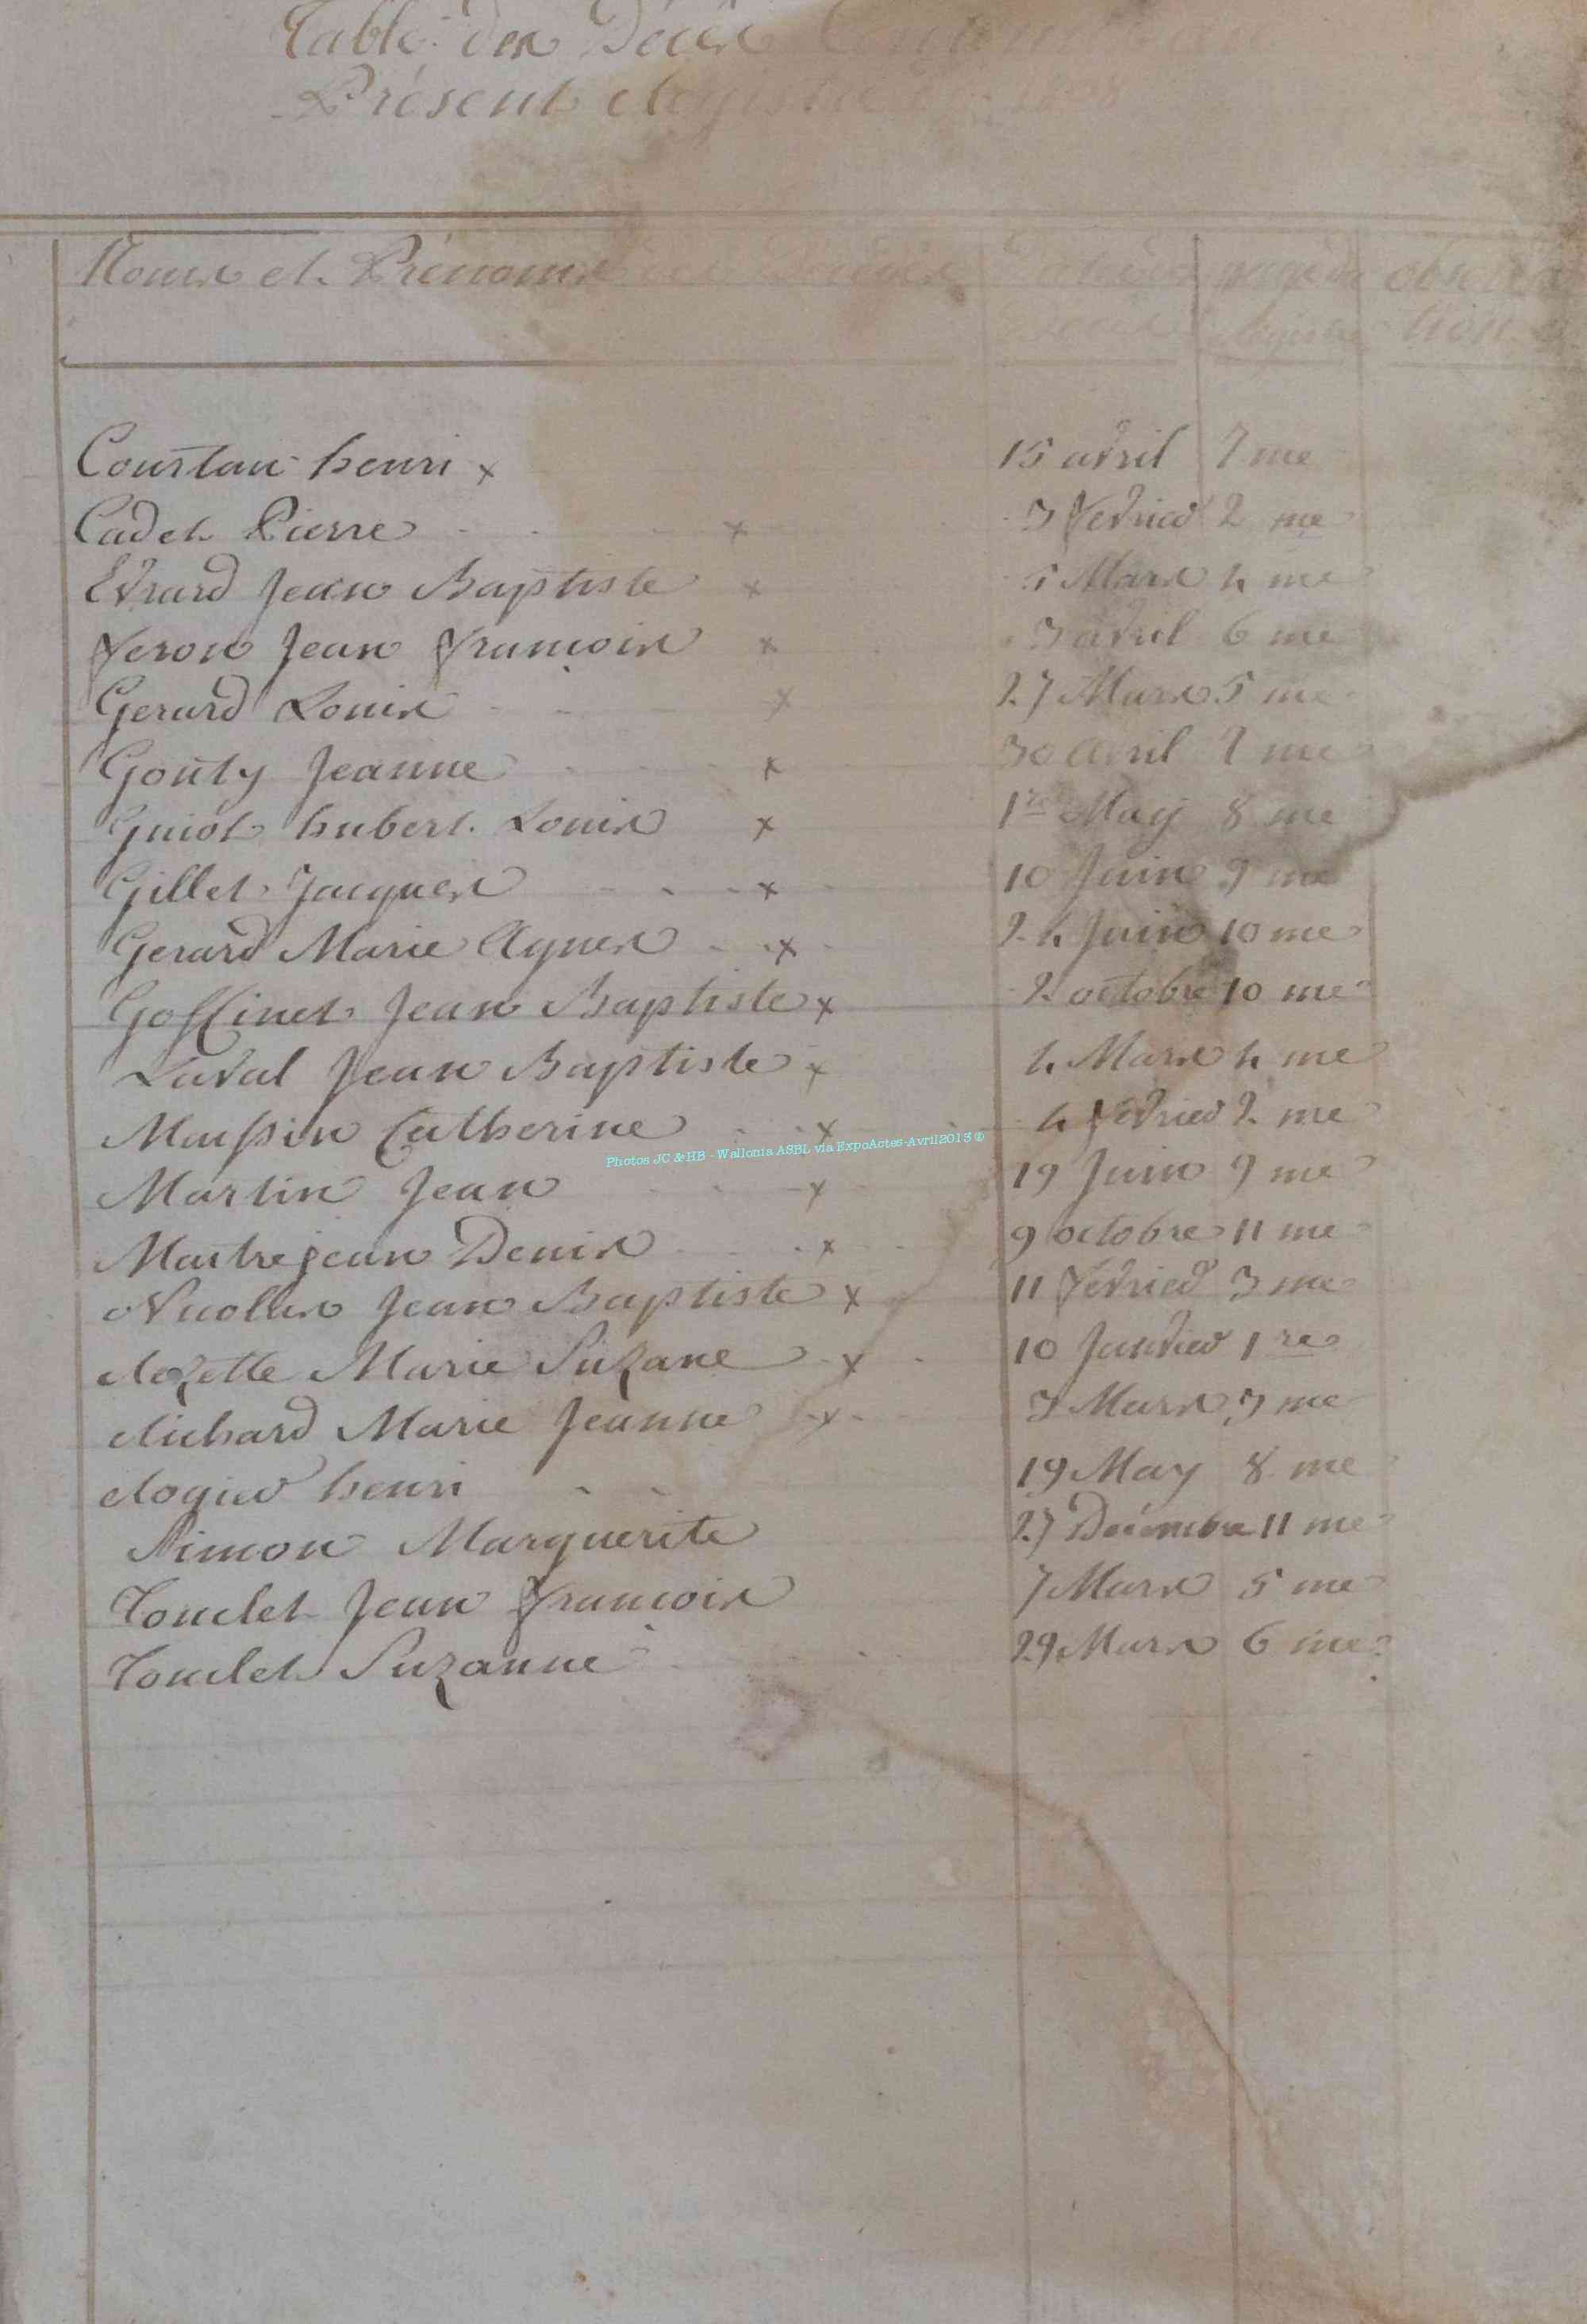 Table des Décès
Présent Registre 1808
Noms et Prénoms des page du observa
Registre tion
Constan henri x 15 avril 7 me
Cadet Pierre x 3 fevrier 2 me
Evrard Jean Baptiste x 5 Mars 4 me
feron Jean francois x 3 avril 6 me
Gerard Louis x 27 Mars 5 me
Gouty Jeanne x 30 avril 7 me
Guiot hubert Louis x 1re May 8 me
Gillet Jacques x 10 Juin 9 me
Gerard Marie Agnes x 24 Juin 10 me
Goffinet Jean Baptiste x 2 octobre 10 me
Laval Jean Baptiste x 4 Mars 4 me
Massin Catherine x 4 fevrier 2 me
Photos JC & HB - Wallonia ASBL via ExpoActes-Avril2013 ©
Martin Jean x 19 Juin 9 me
Maitrejean Denis x 9 octobre 11 me
Nicolas Jean Baptiste x 11 fevrier 3 me
Rozette Marie Suzane x 10 Janvier 1 re
Richard Marie Jeanne x 3 Mars 3 me
Rogier henri 19 May 8 me
Simon Marguerite 27 Decembre 11 me
Touclet Jean francois 7 Mars 5 me
Touclet Suzanne 29 Mars 6 me